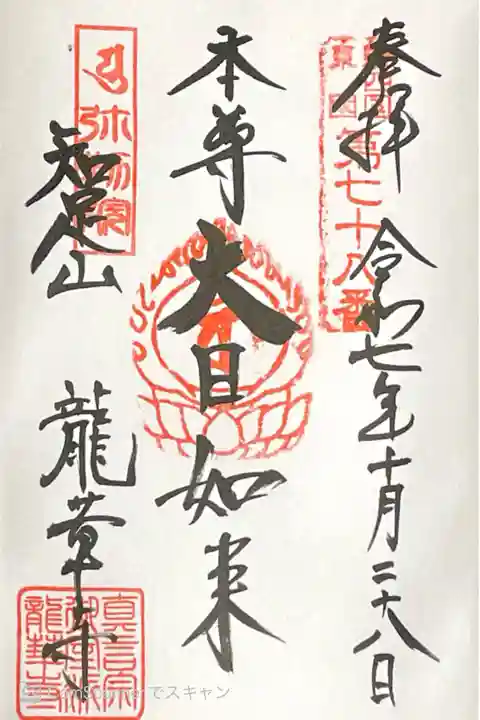 奉拝 令和七年十月二十八日
第七十八番
本尊 大日如来
弥勒密
知足山 龍華寺
真言宗
御室派
龍華寺
CamScanner でスキャン